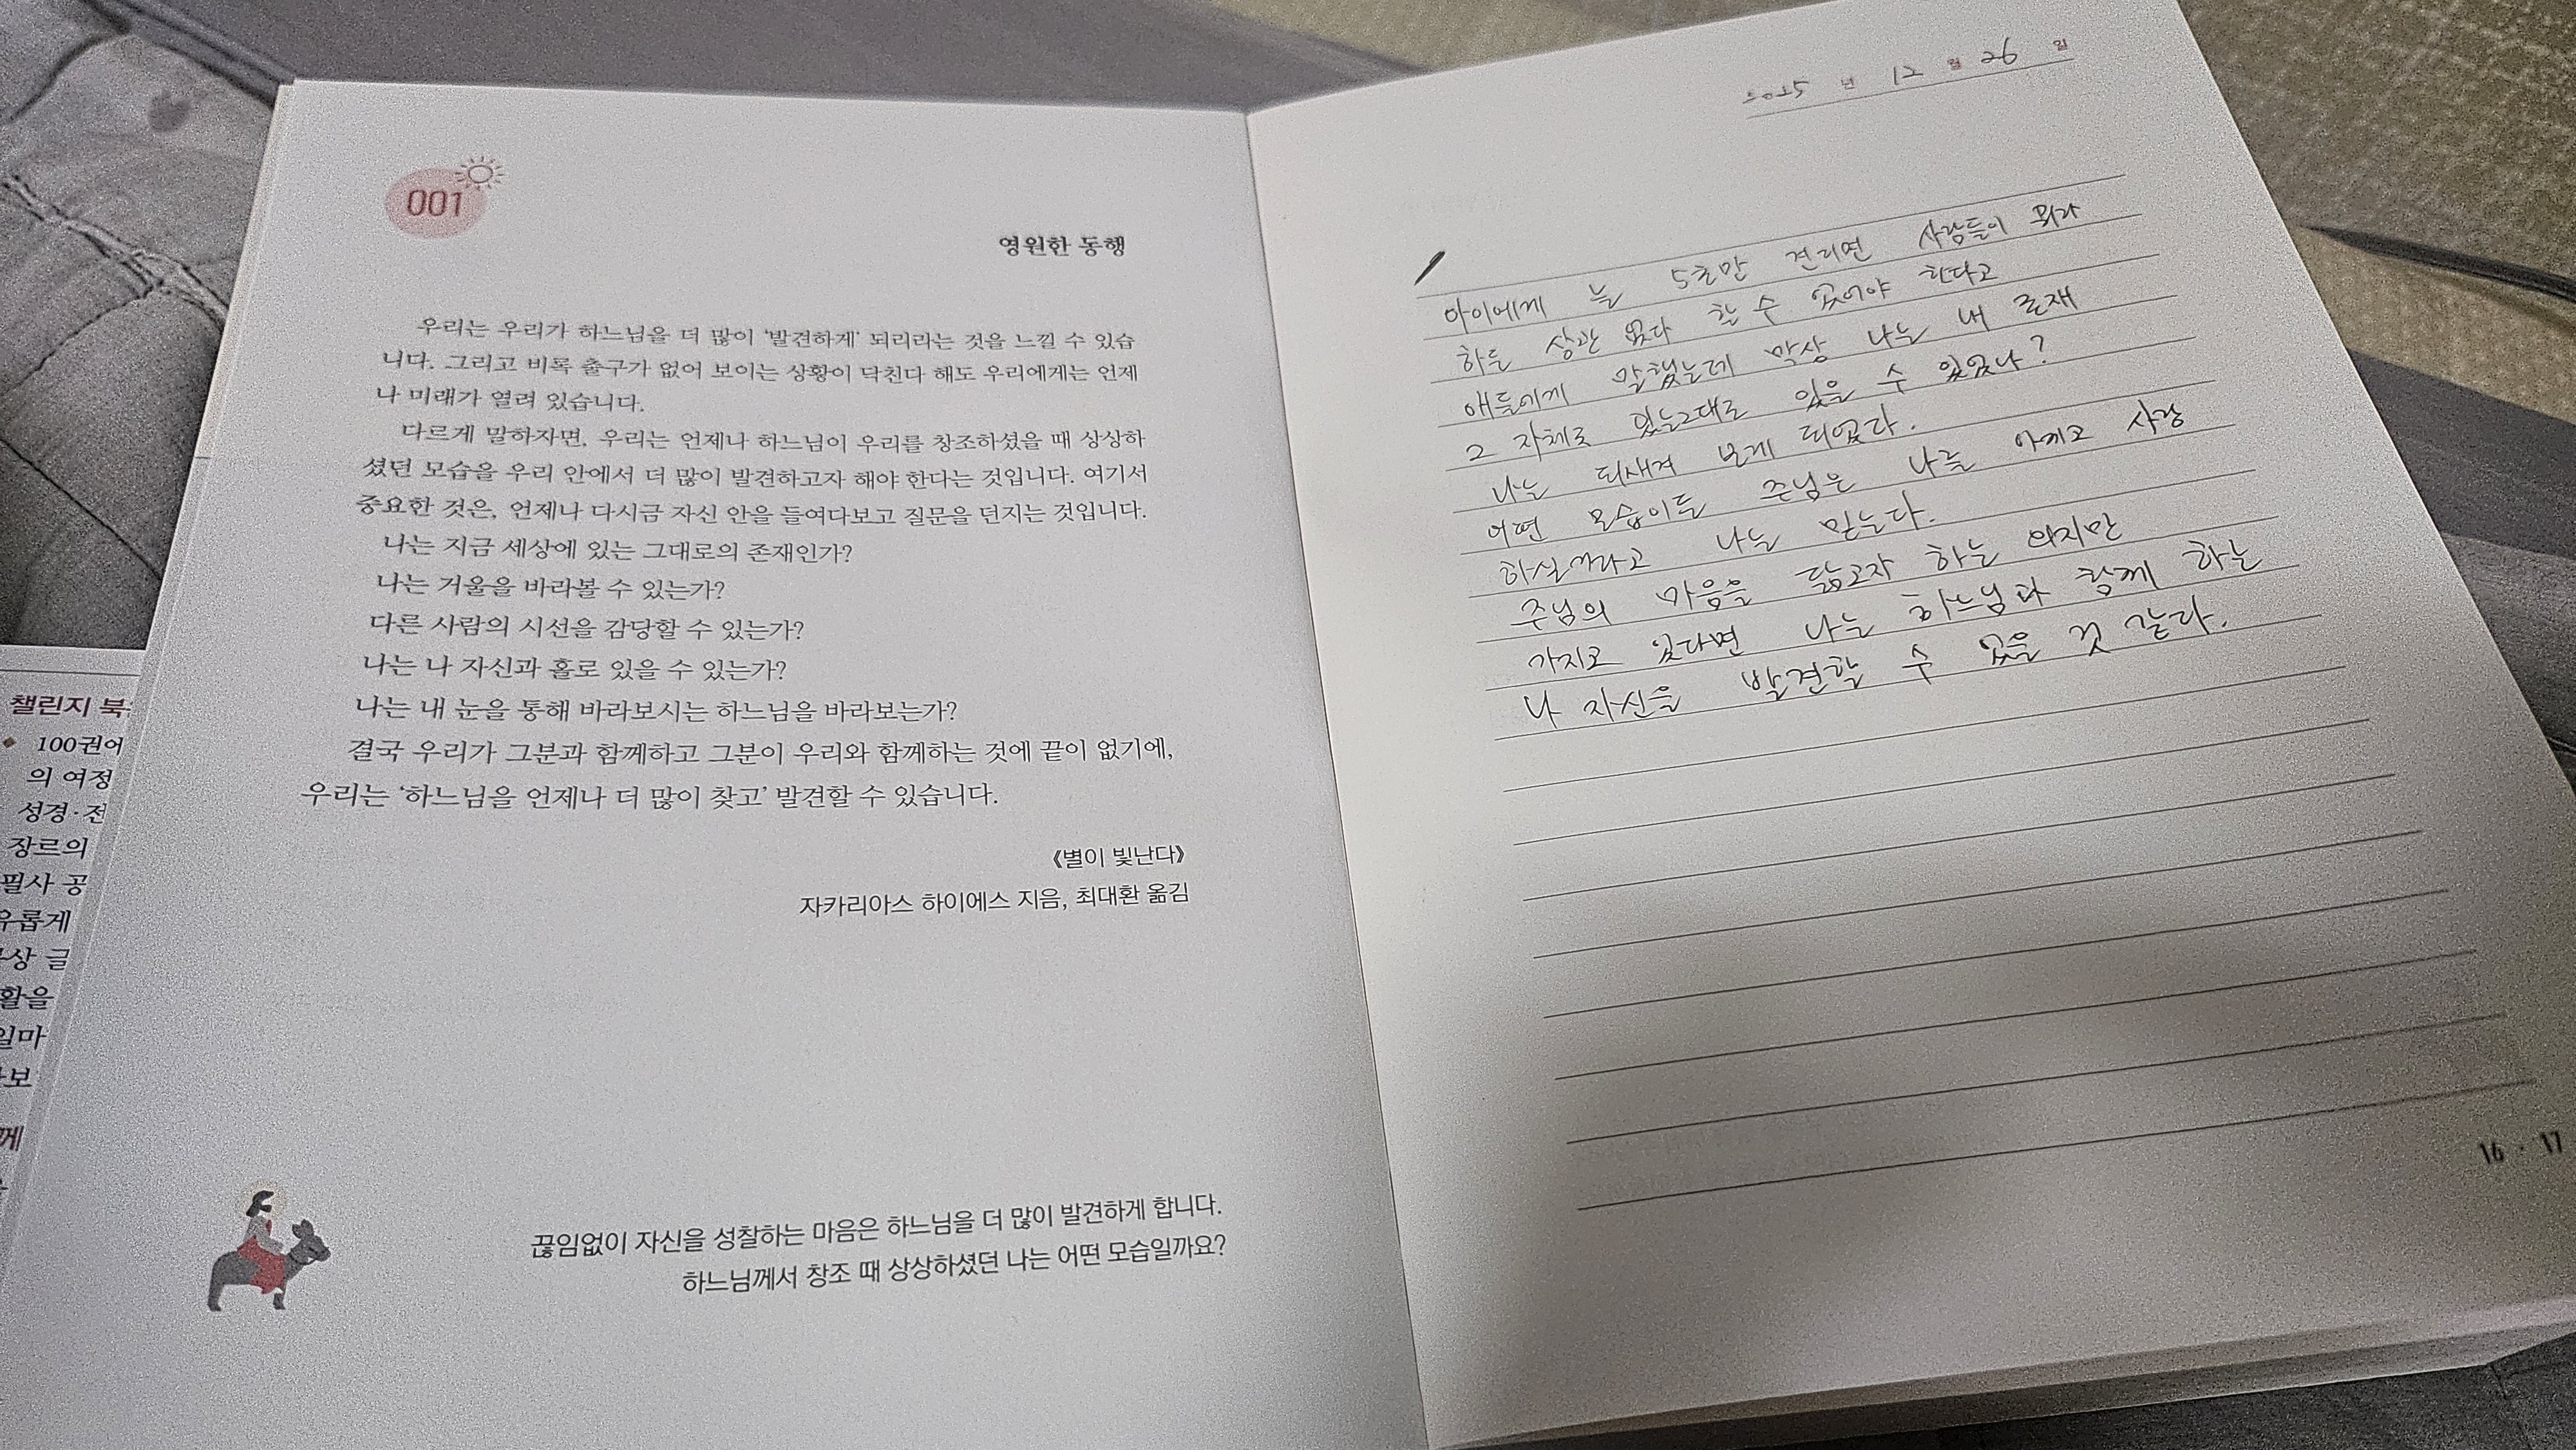 001
영원한 동행
우리는 우리가 하느님을 더 많이 '발견하게' 되리라는 것을 느낄 수 있습
니다. 그리고 비록 출구가 없어 보이는 상황이 닥친다 해도 우리에게는 언제
나 미래가 열려 있습니다.
다르게 말하자면, 우리는 언제나 하느님이 우리를 창조하셨을 때 상상하
셨던 모습을 우리 안에서 더 많이 발견하고자 해야 한다는 것입니다. 여기서
중요한 것은, 언제나 다시금 자신 안을 들여다보고 질문을 던지는 것입니다.
나는 지금 세상에 있는 그대로의 존재인가?
나는 거울을 바라볼 수 있는가?
다른 사람의 시선을 감당할 수 있는가?
나는 나 자신과 홀로 있을 수 있는가?
나는 내 눈을 통해 바라보시는 하느님을 바라보는가?
결국 우리가 그분과 함께하고 그분이 우리와 함께하는 것에 끝이 없기에,
우리는 '하느님을 언제나 더 많이 찾고' 발견할 수 있습니다.
《별이 빛난다》
자카리아스 하이에스 지음, 최대환 옮김
끊임없이 자신을 성찰하는 마음은 하느님을 더 많이 발견하게 합니다.
하느님께서 창조 때 상상하셨던 나는 어떤 모습일까요?
2025 년 12 월 26 일
아이에게 늘 5초만 견디면 사람들이 뭐라
하든 상관 없다 할 수 있어야 한다고
애들에게 말했는데 막상 나는 내 존재
그 자체로 있는그대로 있을 수 있었나?
나는 되새겨 보게 되었다.
어떤 모습이든 주님은 나를 아끼고 사랑
하실거라고 나는 믿는다.
주님의 마음을 닮고자 하는 의지만
가지고 있다면 나는 하느님과 함께 하는
나 자신을 발견할 수 있을 것 같다.
16 · 17
챌린지 북
100권
의 여정
성경·전
장르의
필사 공
유롭게
상 글
활을
일마
보
께